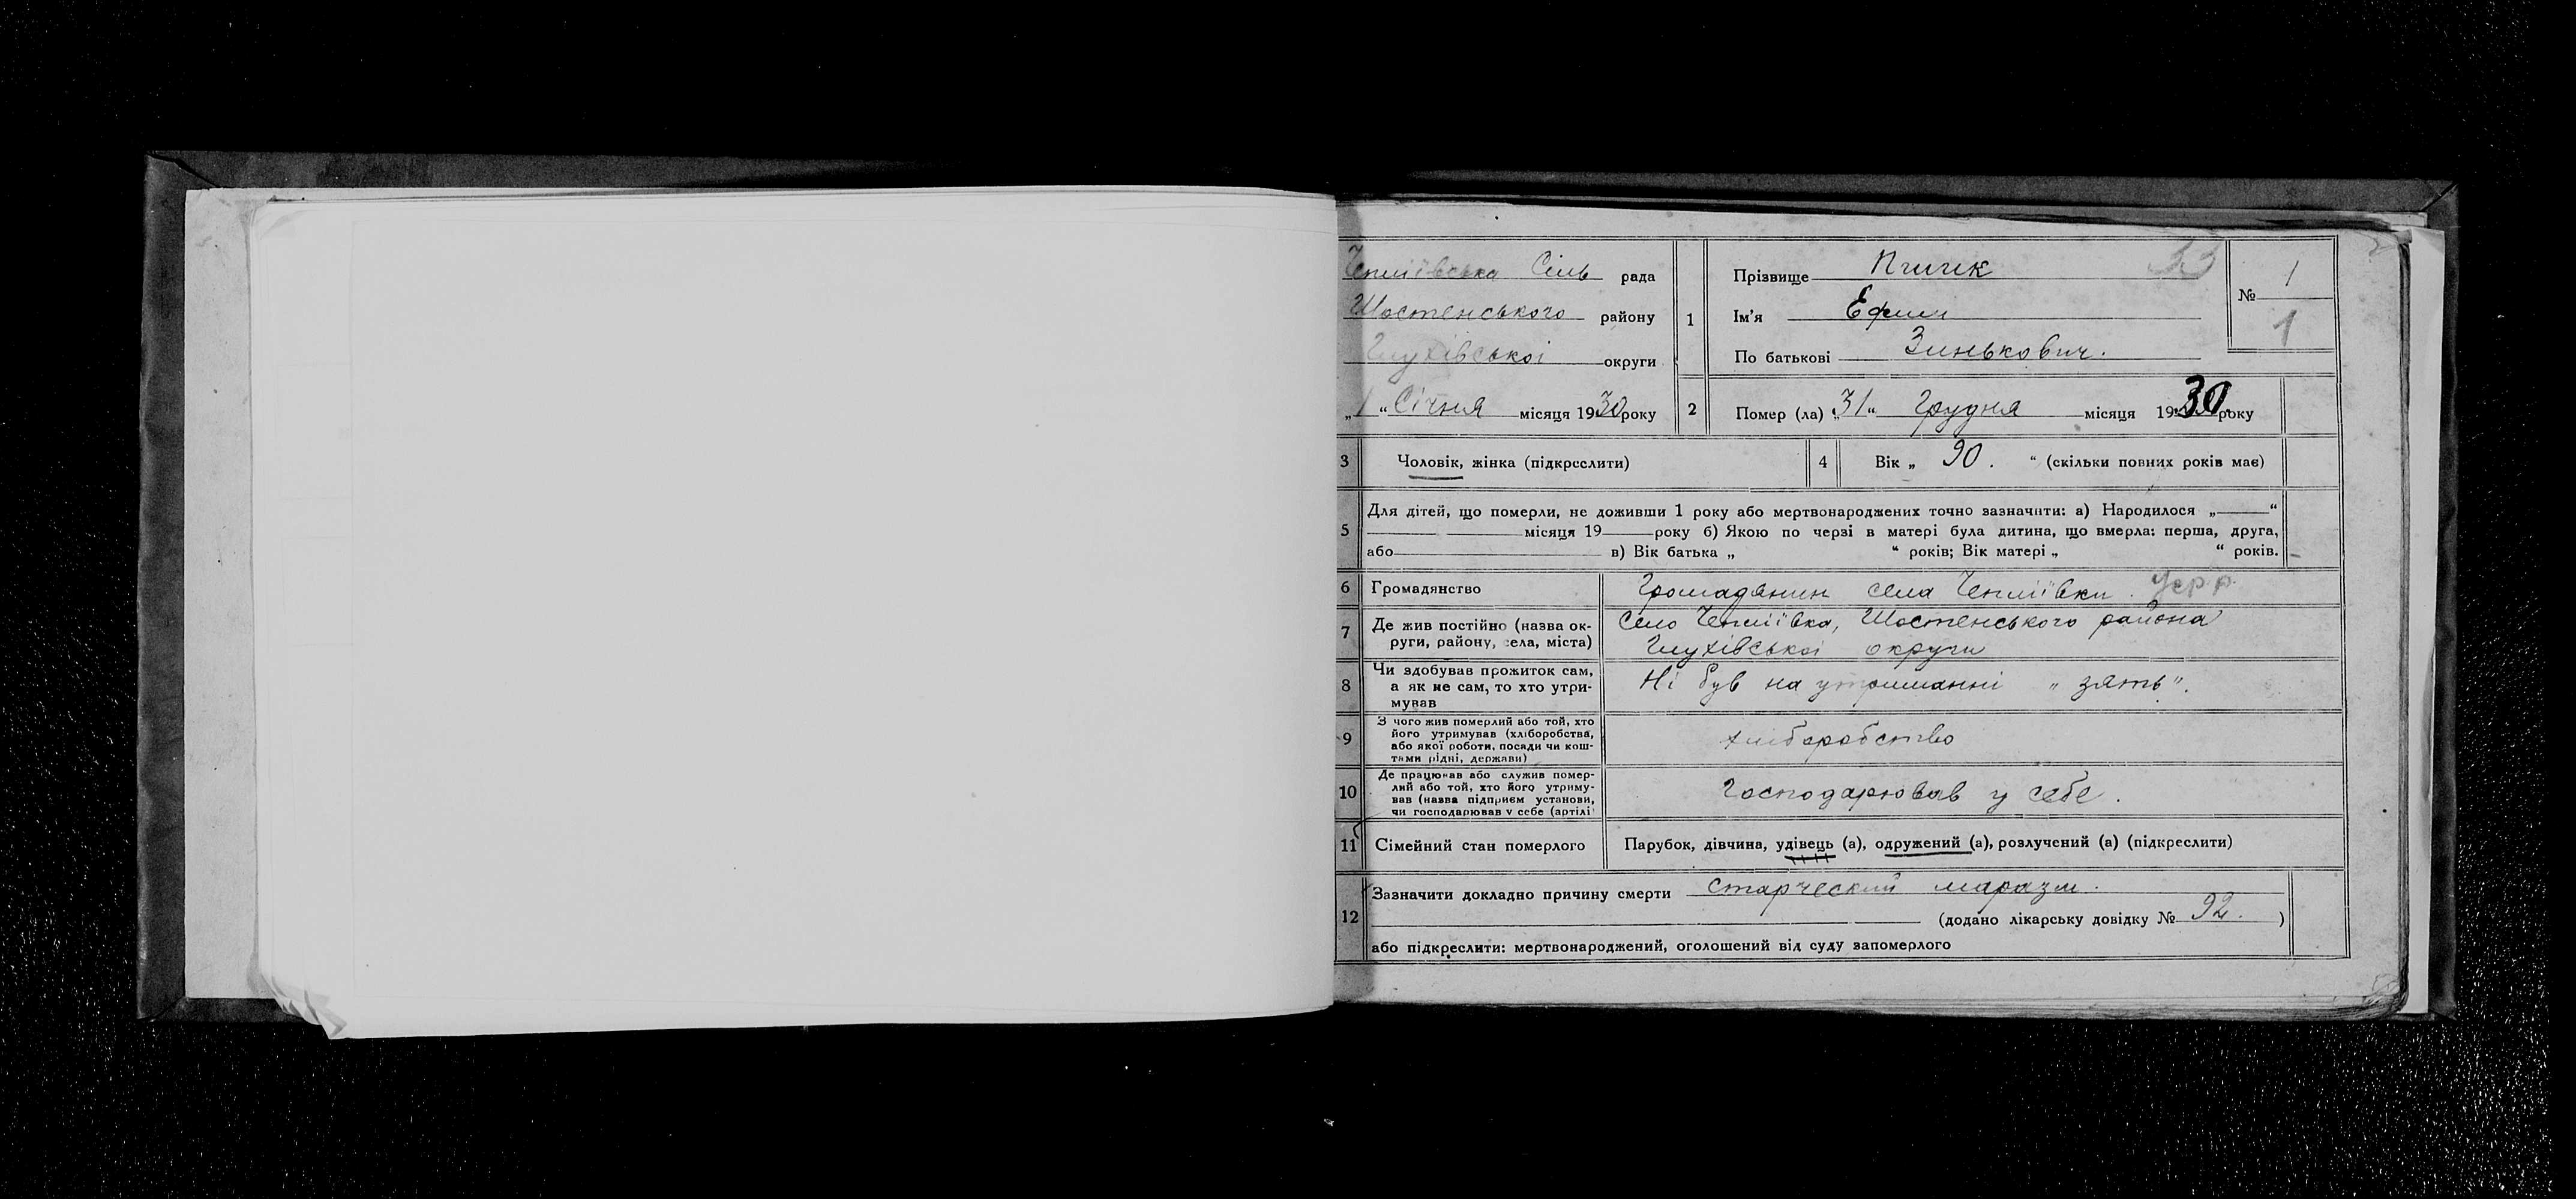 Чепліївська Сіль рада
Шостенського району
Глухівської округи
„1“ Січня місяця 1930 року
1
Прізвище Пчичк
Ім'я Ефим
По батькові Зинькович.
33
№ 1
1
2
Помер (ла) „31“ Грудня місяця 1930 року
3 Чоловік, жінка (підкреслити)
4 Вік „ 90. “ (скільки повних років має)
5 Для дітей, що померли, не доживши 1 року або мертвонароджених точно зазначити: а) Народилося „ “
місяця 19 року б) Якою по черзі в матері була дитина, що вмерла: перша, друга,
або в) Вік батька „ “ років; Вік матері „ “ років.
6 Громадянство Громадянин села Чепліївки. Уср.р.
7 Де жив постійно (назва ок-
руги, району, села, міста)
Село Чепліївка, Шостенського района
Глухівської округи
8 Чи здобував прожиток сам,
а як не сам, то хто утри-
мував
Ні був на утриманні „зять”.
9 З чого жив померлий або той, хто
його утримував (хліборобства,
або якої роботи, посади чи кош-
тами рідні, держави)
хліборобство
10 Де працював або служив помер-
лий або той, хто його утриму-
вав (назва підприєм установи,
чи господарював у себе (артілі
Господарював у себе.
11 Сімейний стан померлого Парубок, дівчина, удівець (а), одружений (а), розлучений (а) (підкреслити)
12 Зазначити докладно причину смерти старческий маразм.
(додано лікарську довідку № 92. )
або підкреслити: мертвонароджений, оголошений від суду запомерлого